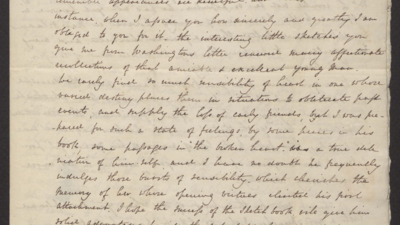 appearances are deceitful
instance, when I assure you how sincerely and greatly I am
obliged to you for it. the interesting little sketches you
give me from Washingtons letter renewed many affectionate
recollections of that amiable & excellent young man.
we rarely find so much sensibility of heart in one whose
varied destiny places them in situations to obliterate past
events, and supply the loss of early friends, but I was pre-
pared for such a state of feelings, by some pieces in his
book, some passages in the broken heart are a true deli
neation of himself and I have no doubt he frequently
indulges those bursts of sensibility, which cherishes the
memory of her whose opening virtues elicited his first
attachment, I hope the success of the Sketch book will give him
solid